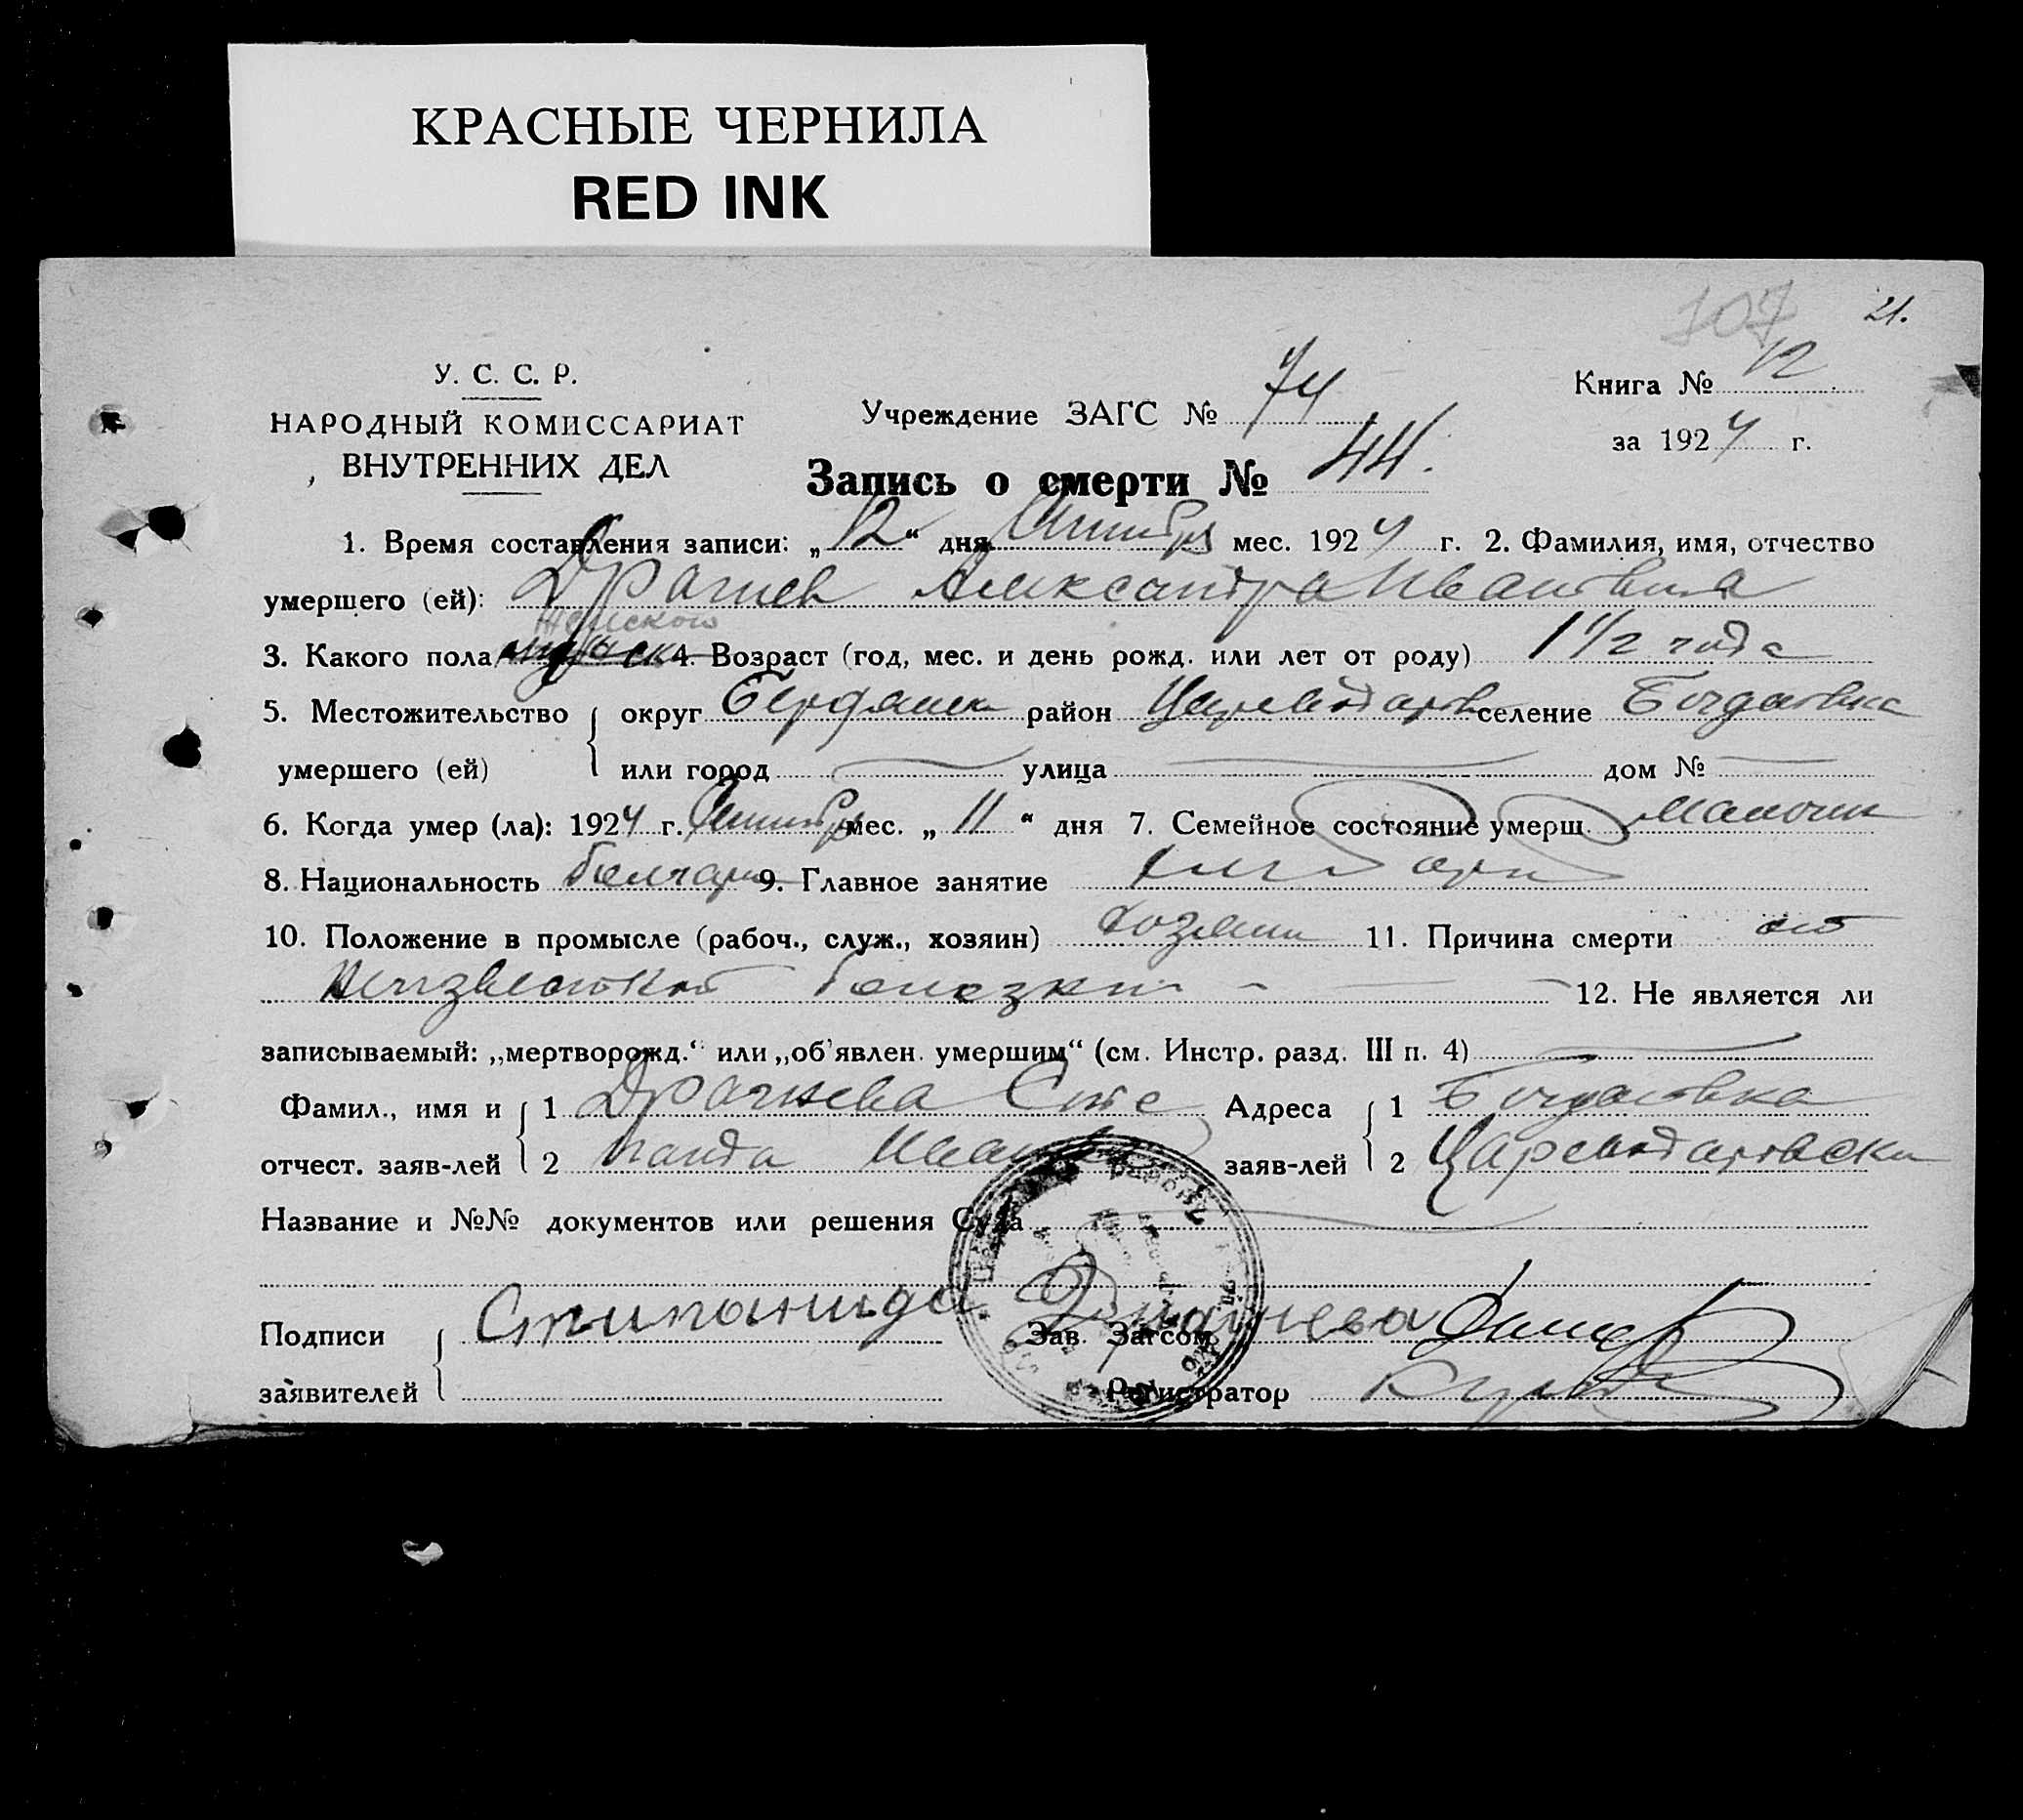 КРАСНЫЕ ЧЕРНИЛА
RED INK
107 21.
У. С. С. Р.
НАРОДНЫЙ КОМИССАРИАТ
ВНУТРЕННИХ ДЕЛ
Учреждение ЗАГС № 74
Книга № 12
за 1924 г.
Запись о смерти № 44.
1. Время составления записи: „12“ дня мес. 1924 г. 2. Фамилия, имя, отчество
умершего (ей): Драгнев Александра Ивановна
женского
3. Какого пола 4. Возраст (год, мес. и день рожд. или лет от роду) 1 1/2 года
5. Местожительство округ Бердянск район Цареводаров селение Богдановка
умершего (ей) или город улица дом №
6. Когда умер (ла): 1924 г. мес. „11“ дня 7. Семейное состояние умерш.
8. Национальность болгарка 9. Главное занятие хлебороб
10. Положение в промысле (рабоч., служ., хозяин) хозяин 11. Причина смерти от
неизвестной болезни 12. Не является ли
записываемый: „мертворожд.“ или „об'явлен. умершим“ (см. Инстр. разд. III п. 4)
Фамил., имя и 1 Драгнева Степа Адреса 1 Богдановка
отчест. заяв-лей 2 нида заяв-лей 2 Цареводаровски
Название и №№ документов или решения Суда
Подписи Стипанида Драгнева Зав. Загсом
заявителей Регистратор